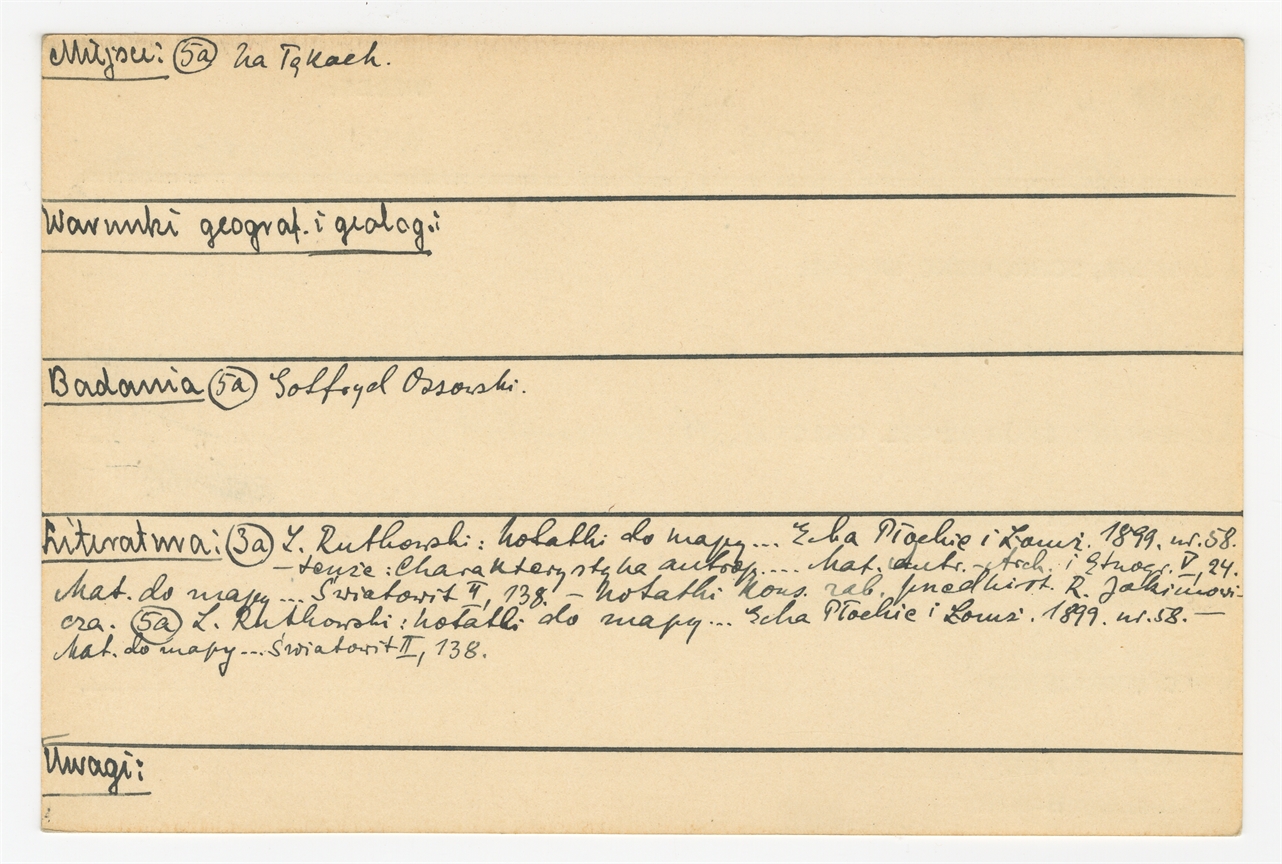 Miejsce: (5a) na Łąkach.
Warunki geograf. i geolog.:
Badania (5a) Gotfryd Ossowski.
Literatura: (3a) L. Rutkowski: Notatki do mapy... Echa Płockie i Łomż. 1899. nr. 58.
— tenże: Charakterystyka antrop.... Mat. antr.-Arch. i Etnogr. V, 24.
Mat. do mapy... Światowit II, 138. — Notatki kons. zab. przedhist. R. Jakimowi-
cza. (5a) L. Rutkowski: Notatki do mapy... Echa Płockie i Łomż. 1899. nr. 58. —
Mat. do mapy... Światowit II, 138.
Uwagi: